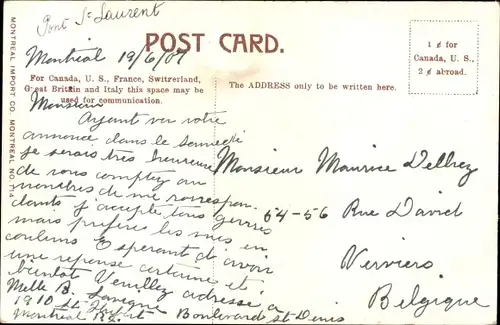 Pont St Laurent
Montréal 19/6/07
POST CARD.
1¢ for
Canada, U. S.,
2¢ abroad.
For Canada, U. S., France, Switzerland,
Great Britain and Italy this space may be
used for communication.
The ADDRESS only to be written here.
MONTREAL IMPORT CO. MONTREAL NO. 714
Monsieur
Ayant vu votre
annonce dans le Samedi
je serais très heureuse
de vous compter au
nombres de me correspon
dants j'accepte tous genres
mais préfère les vues en
couleurs Esperant d'avoir
une reponse certaine et
bientot Veuillez adresse a
Melle B.
1910 St
Boulevard St Denis
Montreal
Monsieur Maurice Delhez
54-56 Rue David
Verviers
Belgique